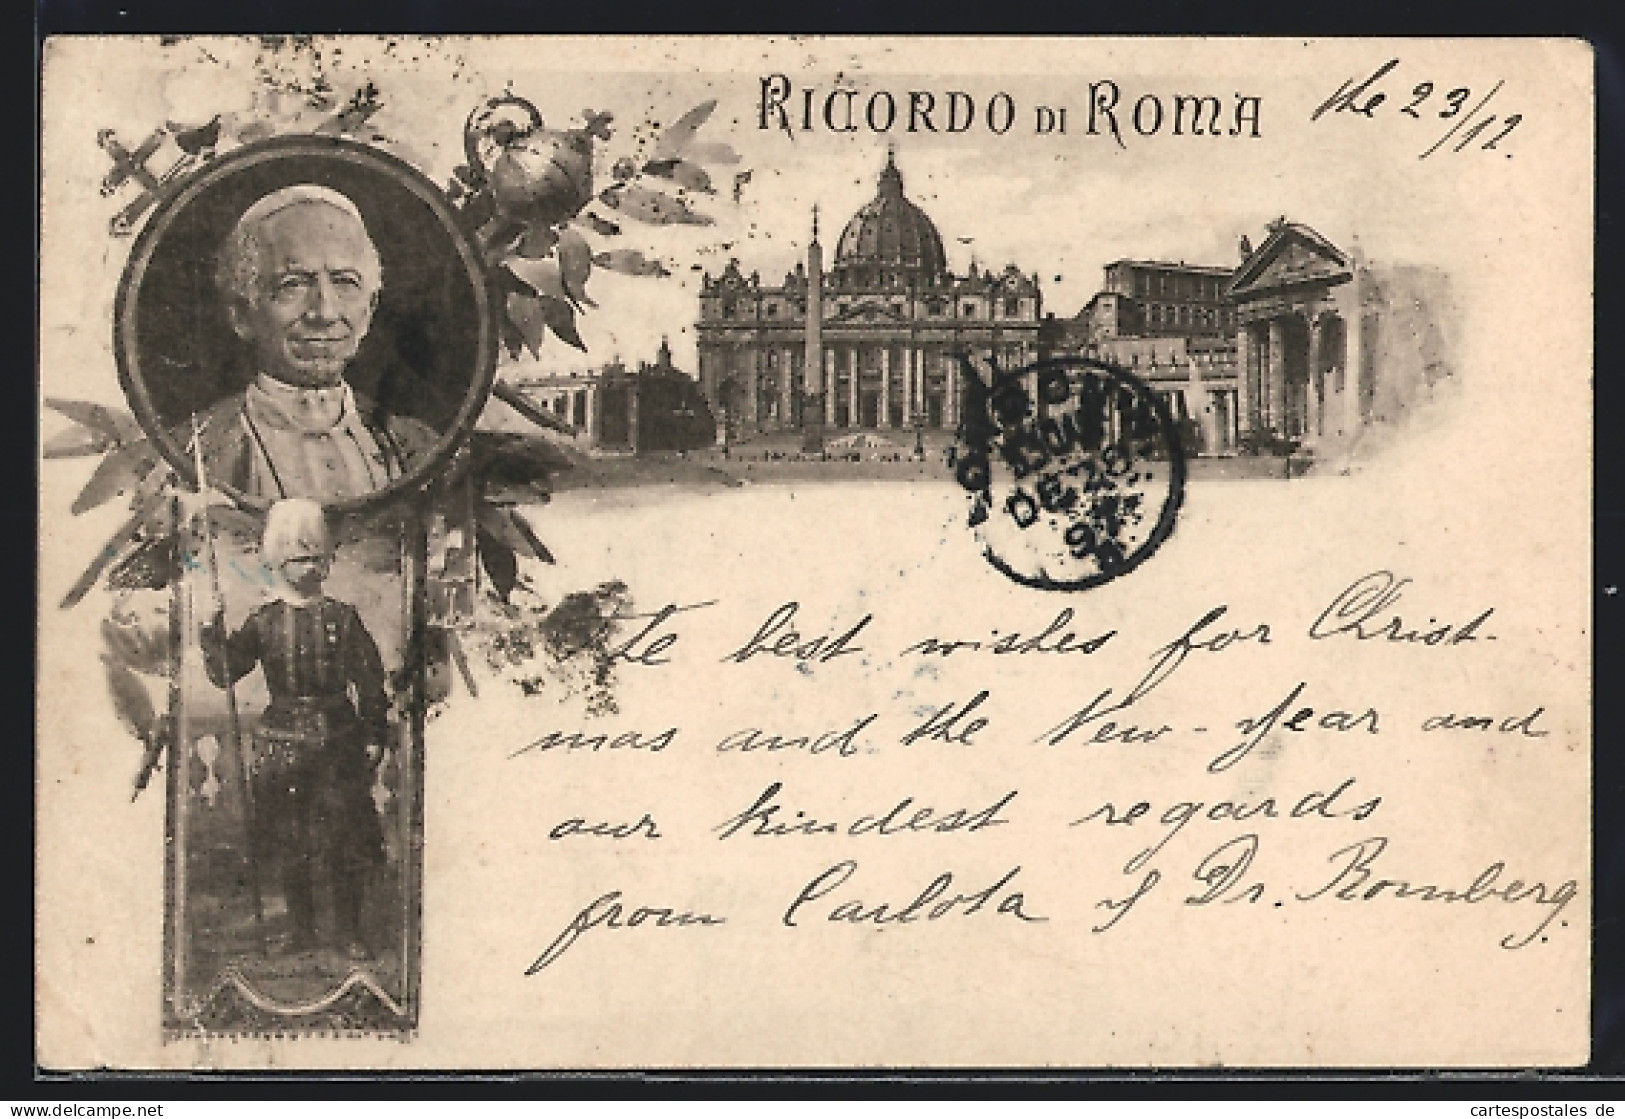 RICORDO DI ROMA
the 23/12.
DE 28
97
best wishes for Christ-
mas and the New-Year and
our kindest regards
from Carlota & Dr. Romberg.
cartespostales de